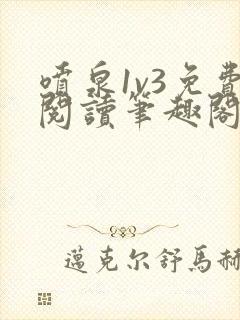 噴泉1v3免費
閱讀筆趣閣
邁克尔舒馬赫